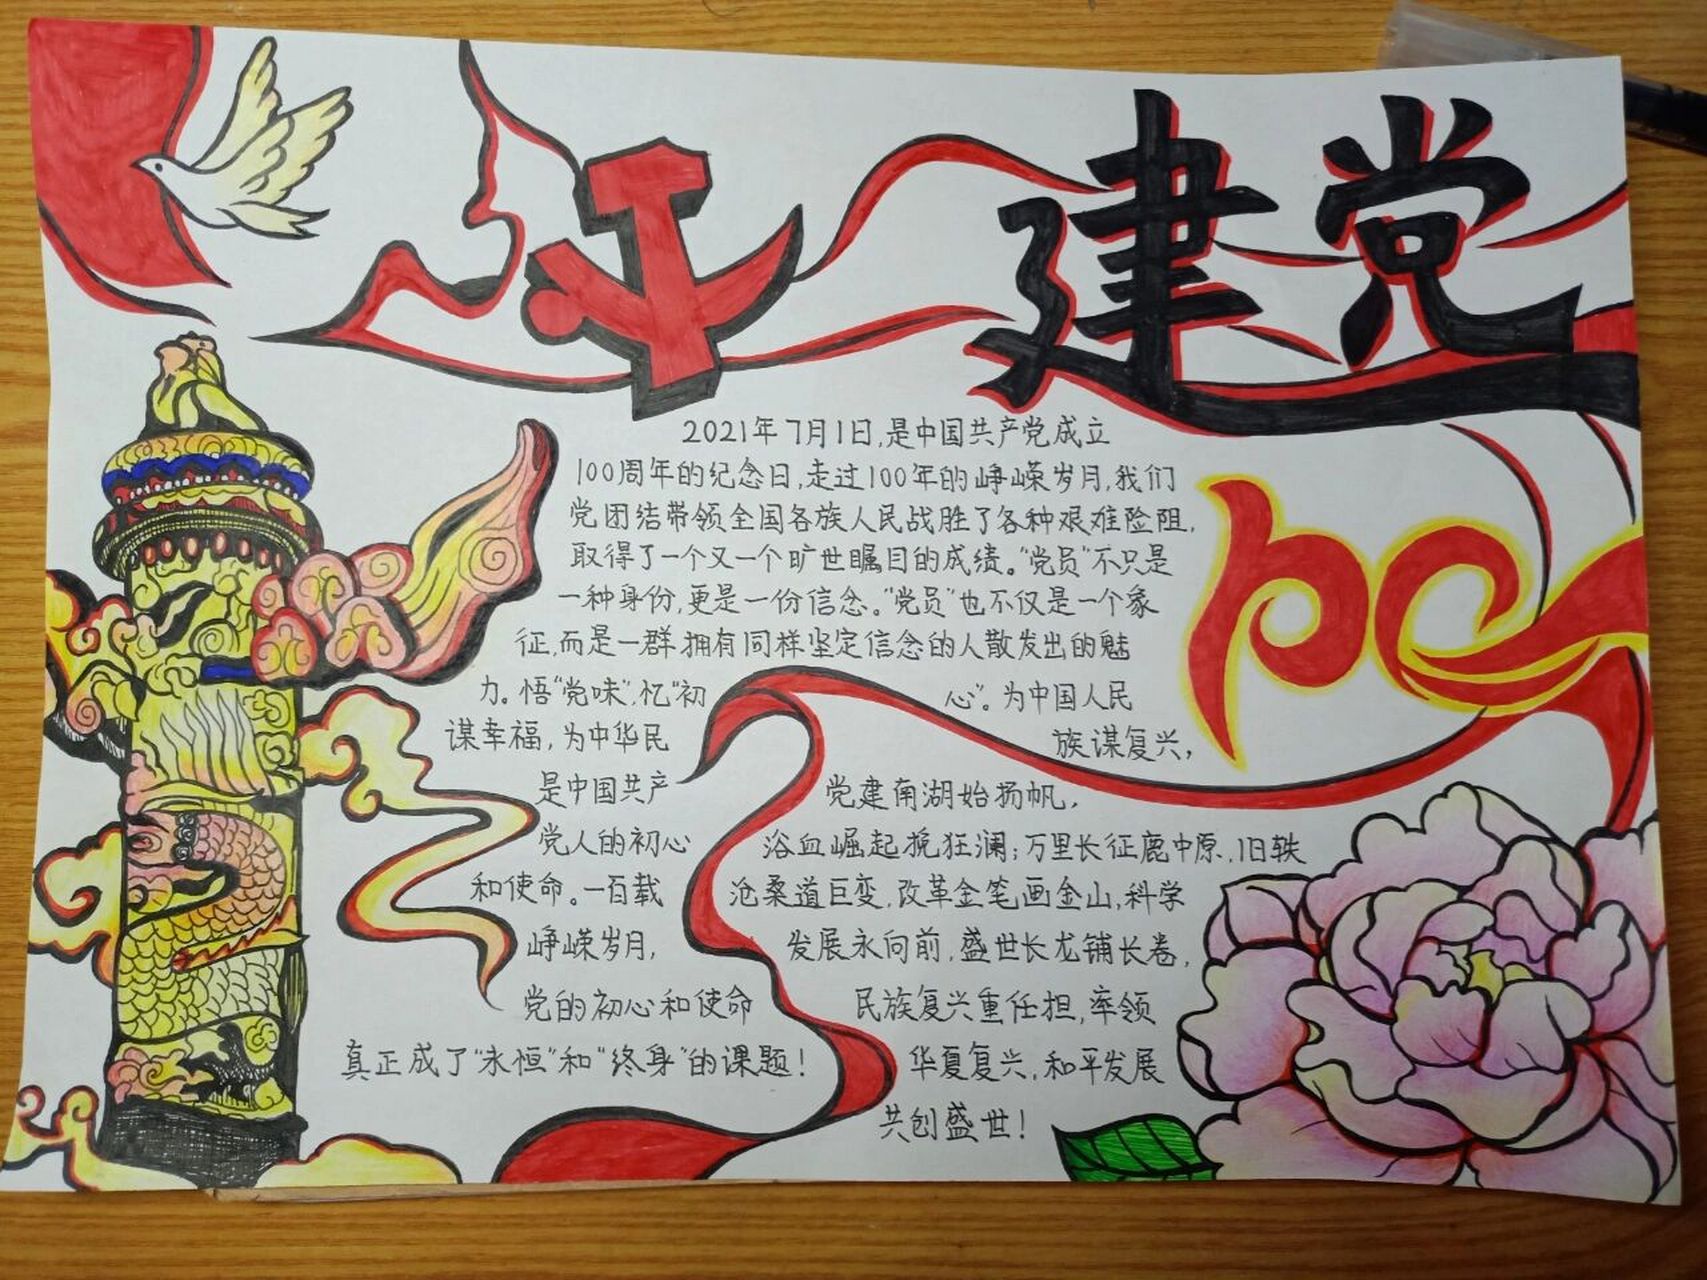 建党
2021年7月1日,是中国共产党成立
100周年的纪念日,走过100年的峥嵘岁月,我们
党团结带领全国各族人民战胜了各种艰难险阻,
取得了一个又一个旷世瞩目的成绩。“党员”不只是
一种身份,更是一份信念。“党员”也不仅是一个象
征,而是一群拥有同样坚定信念的人散发出的魅
力。悟“党味”,忆“初心”。为中国人民
谋幸福,为中华民族谋复兴,
是中国共产
党人的初心
和使命。一百载
峥嵘岁月,
党的初心和使命
真正成了“永恒”和“终身”的课题!
党建南湖始扬帆,
浴血崛起挽狂澜;万里长征鹿中原,旧轶
沧桑道巨变,改革金笔画金山,科学
发展永向前,盛世长龙铺长卷,
民族复兴重任担,率领
华夏复兴,和平发展
共创盛世!